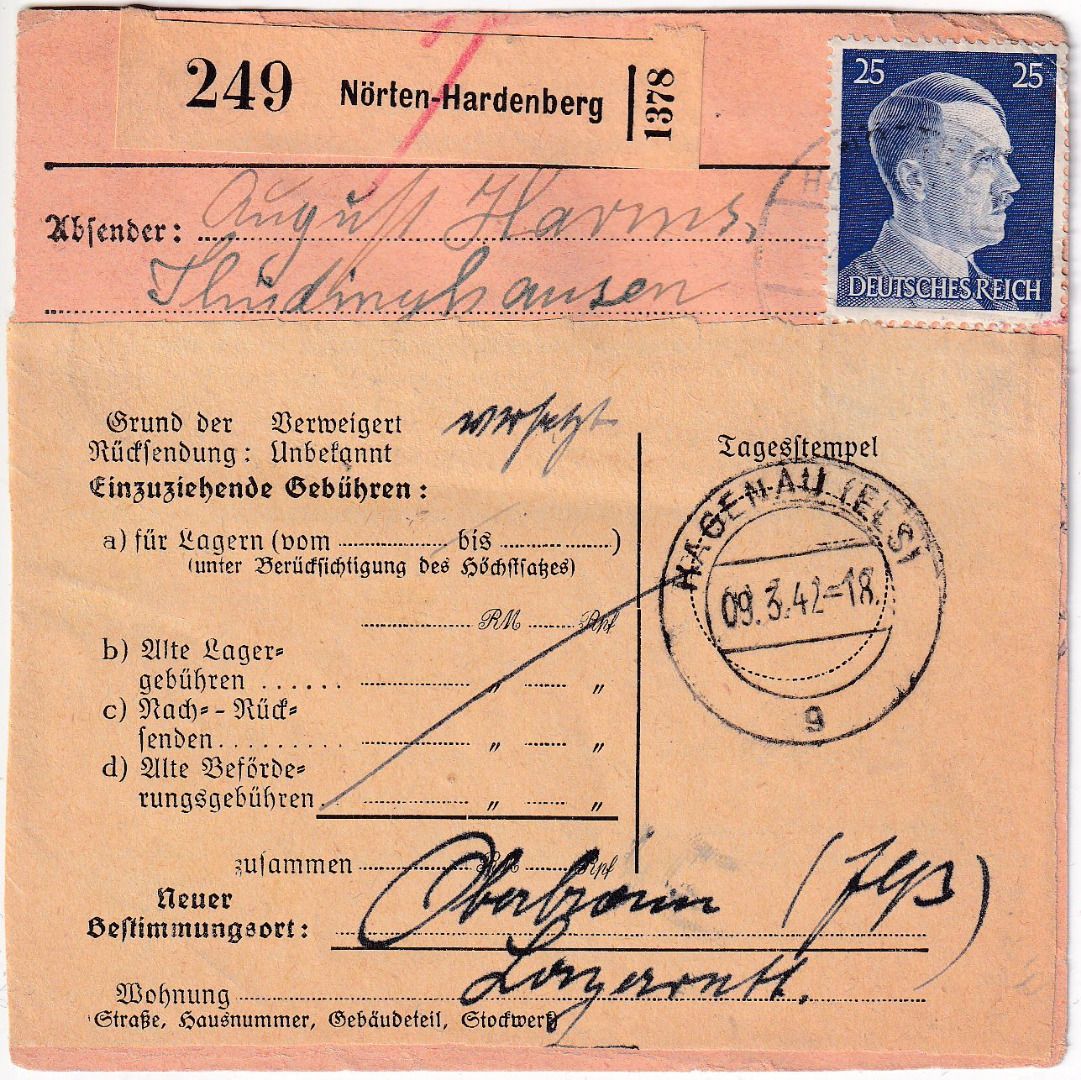 249 Nörten-Hardenberg 1378
25 25
DEUTSCHES REICH
Absender: August Harms,
Thüdinghausen
Grund der Verweigert versetzt
Rücksendung: Unbekannt
Einzuziehende Gebühren:
a) für Lagern (vom bis )
(unter Berücksichtigung des Höchstsatzes)
RM Rpf
b) Alte Lager=
gebühren ...... " "
c) Nach= - Rück=
senden ......... " "
d) Alte Beförde=
rungsgebühren " "
zusammen RM Rpf
Tagesstempel
HAGENAU (ELS)
09.3.42-18.
g
Neuer
Bestimmungsort: Oberbronn (Elsß)
Wohnung
(Straße, Hausnummer, Gebäudeteil, Stockwerk)